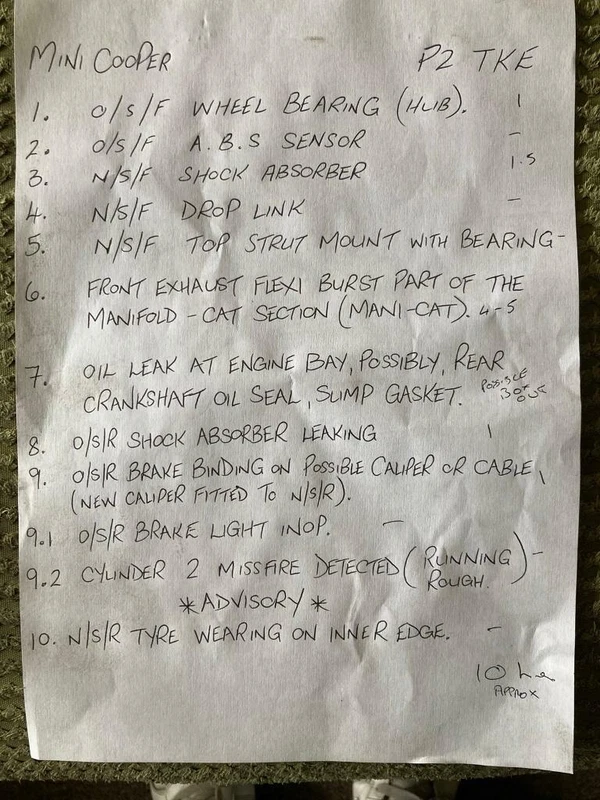 MINI COOPER P2 TKE
1. O/S/F WHEEL BEARING (HUB). 1
2. O/S/F A.B.S SENSOR -
3. N/S/F SHOCK ABSORBER 1.5
4. N/S/F DROP LINK -
5. N/S/F TOP STRUT MOUNT WITH BEARING -
6. FRONT EXHAUST FLEXI BURST PART OF THE
MANIFOLD - CAT SECTION (MANI-CAT). 4-5
7. OIL LEAK AT ENGINE BAY, POSSIBLY, REAR
CRANKSHAFT OIL SEAL, SUMP GASKET. POSSIBLE
8. O/S/R SHOCK ABSORBER LEAKING 1
9. O/S/R BRAKE BINDING ON POSSIBLE CALIPER OR CABLE 1
(NEW CALIPER FITTED TO N/S/R).
9.1 O/S/R BRAKE LIGHT INOP. -
9.2 CYLINDER 2 MISSFIRE DETECTED (RUNNING ROUGH.) -
*ADVISORY*
10. N/S/R TYRE WEARING ON INNER EDGE. -
10
APPROX